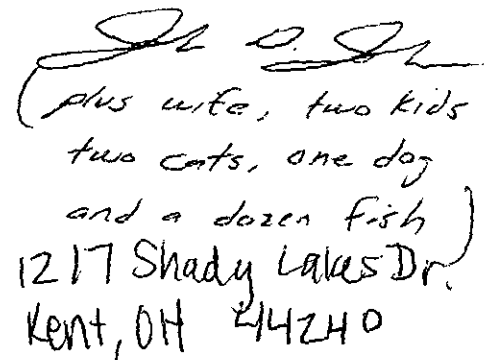 (plus wife, two kids
two cats, one dog
and a dozen fish)
1217 Shady Lakes Dr.
Kent, OH 44240